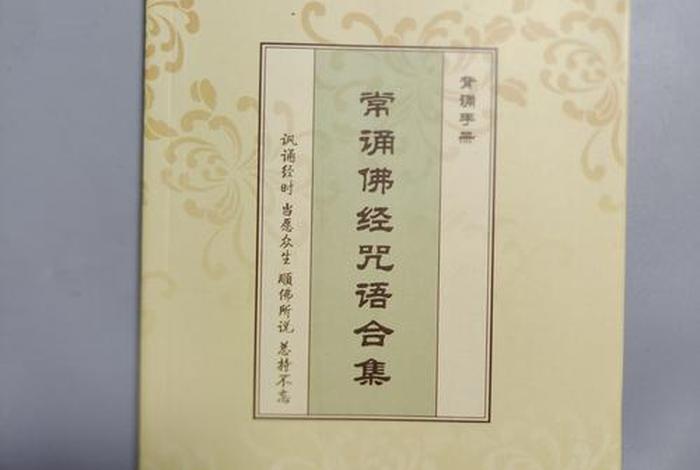 背诵手册
常诵佛经咒语合集
讽诵经时 当愿众生 顺佛所说 总持不忘